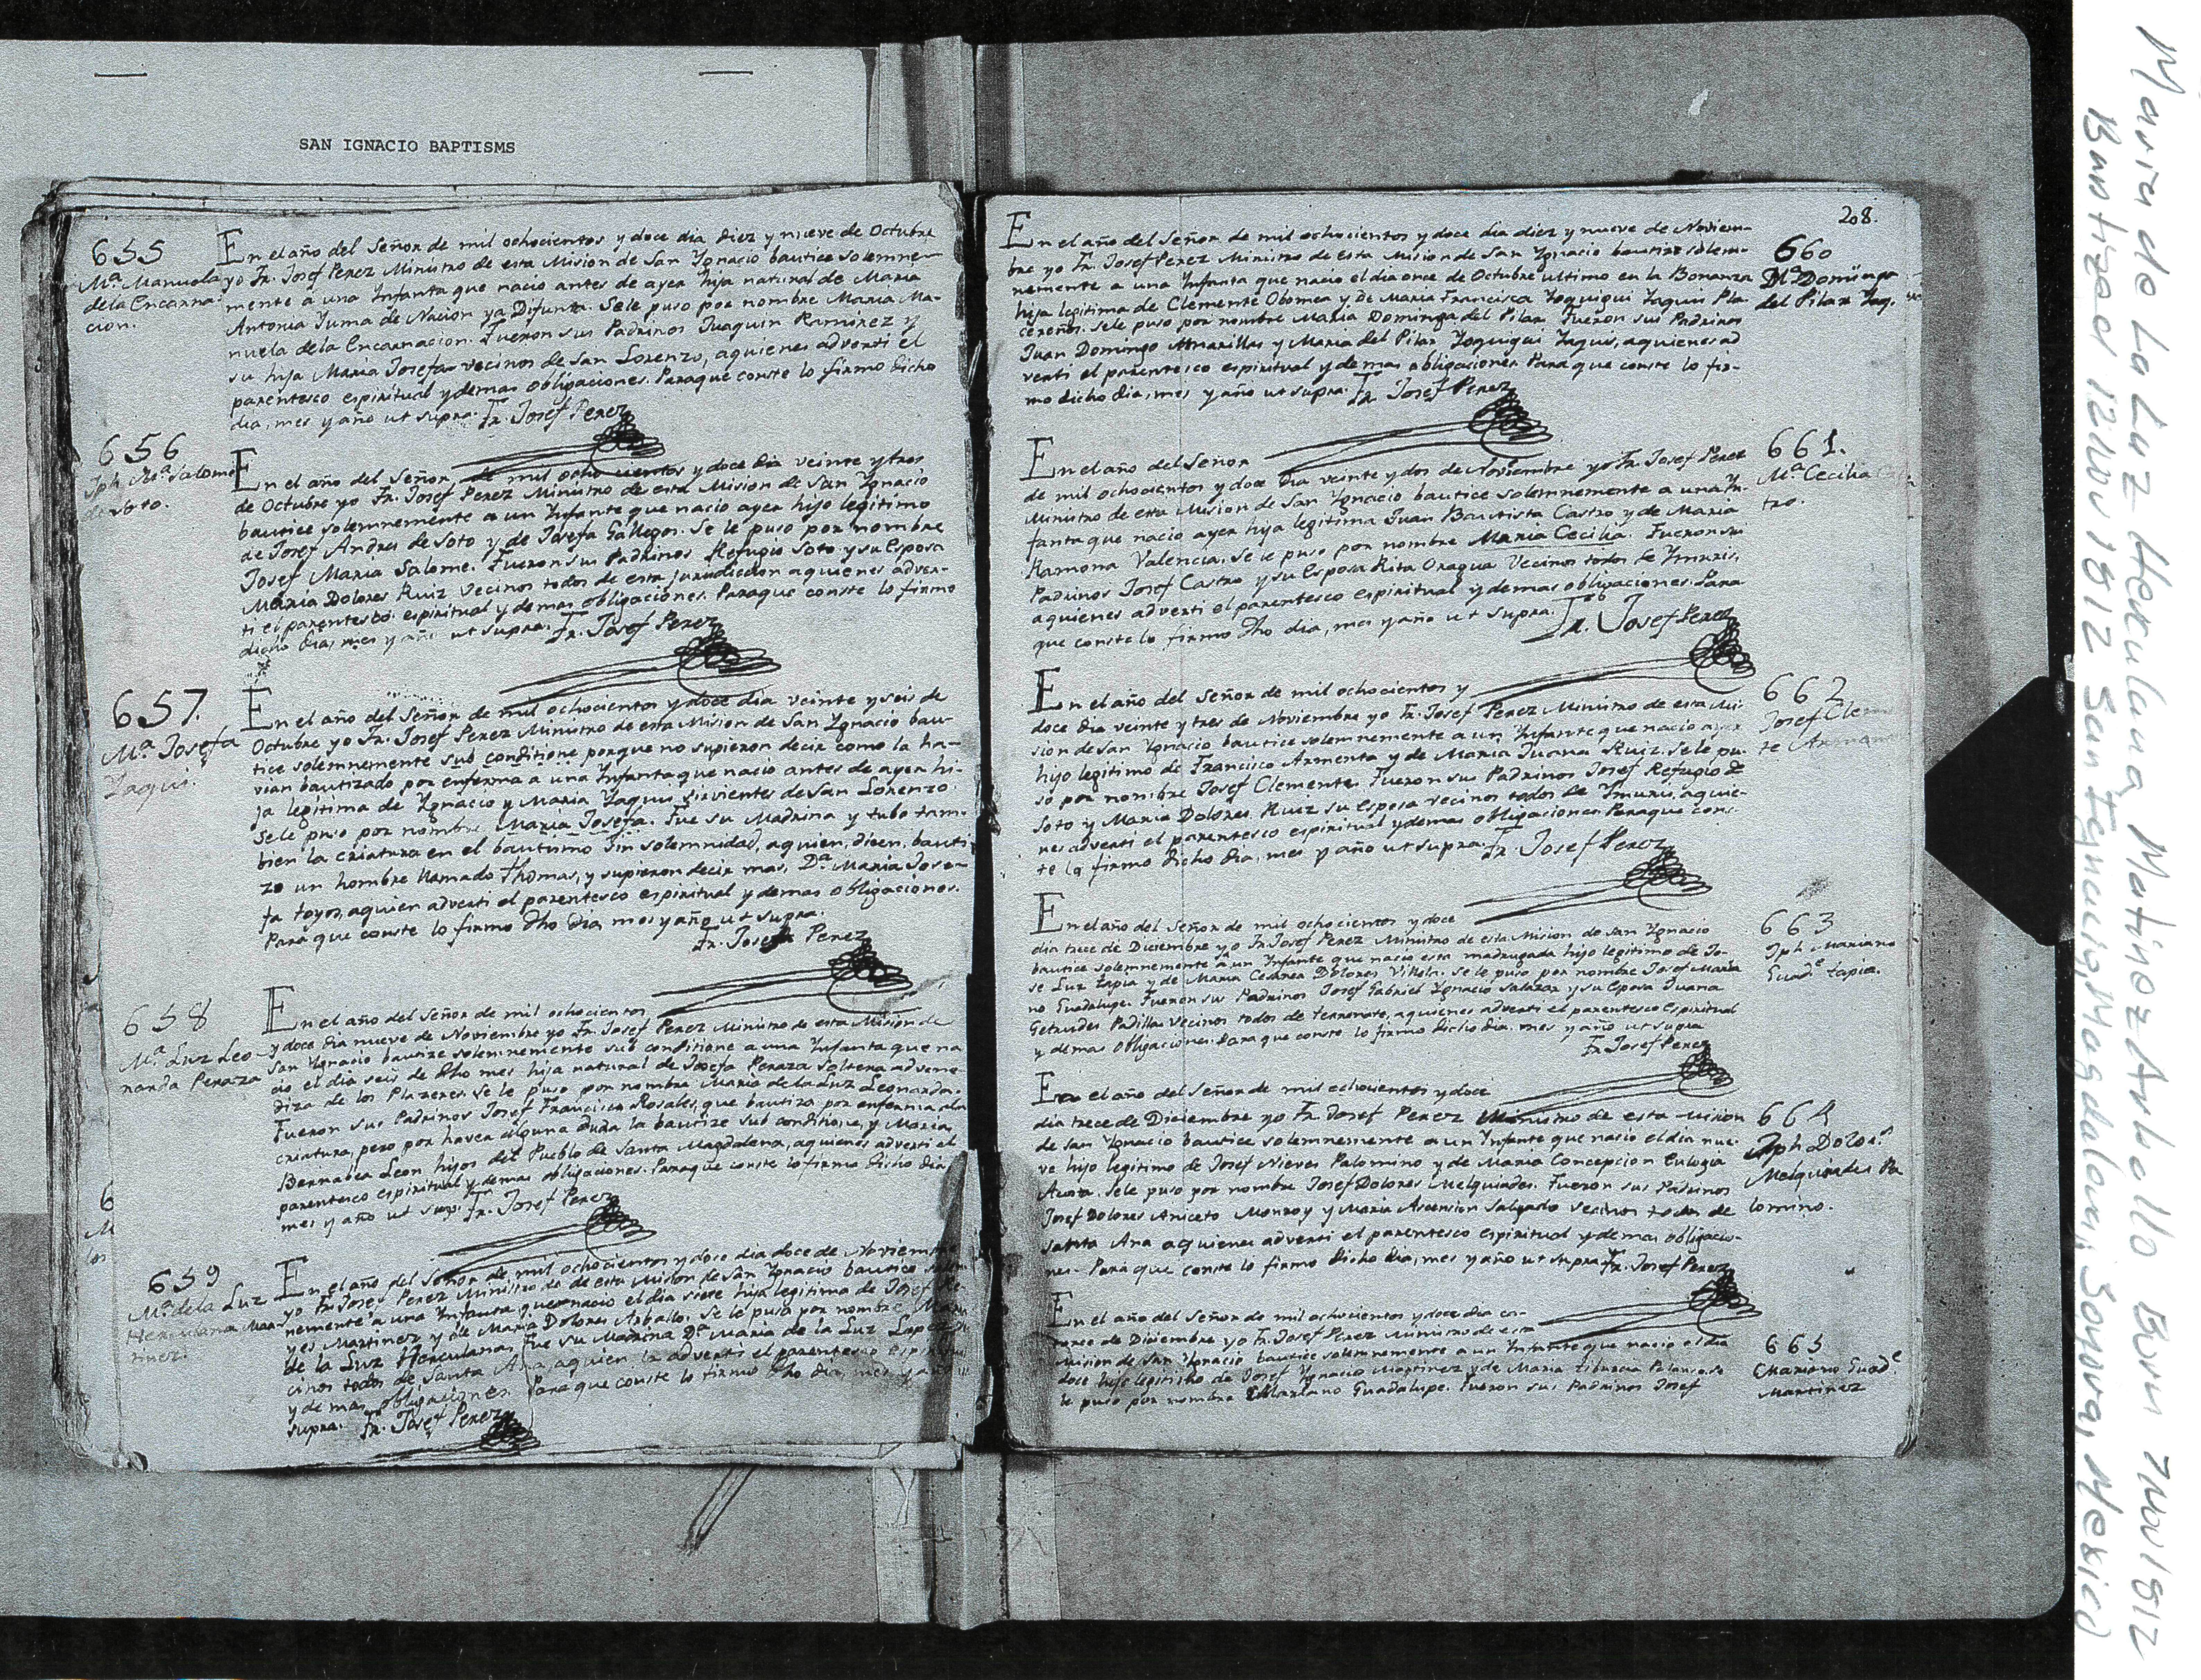 SAN IGNACIO BAPTISMS
655
Mª. Manuela
dela Encarna-
cion.
En el año del Señor de mil ochocientos y doce dia diez y nueve de Octubre
yo Fr. Josef Perez Ministro de esta Mision de San Ygnacio bautice solemne-
mente a una Ynfanta que nacio antes de ayer hija natural de Maria
Antonia Yuma de Nacion ya Difunta. Sele puso por nombre Maria Ma-
nuela dela Encarnacion. Fueron sus Padrinos Juaquin Ramirez y
su hija Maria Josefa vecinos de San Lorenzo, aquienes adverti el
parentesco espiritual y demas obligaciones. Paraque conste lo firmo dicho
dia, mes y año ut supra. Fr. Josef Perez
656
Jph Mª Salome
de Soto.
En el año del Señor de mil ochocientos y doce dia veinte y tres
de Octubre yo Fr. Josef Perez Ministro de esta Mision de San Ygnacio
bautice solemnemente a un Ynfante que nacio ayer hijo legitimo
de Josef Andres de Soto y de Josefa Gallegos. Se le puso por nombre
Josef Maria Salome. Fueron sus Padrinos Refugio Soto y su Esposa
Maria Dolores Ruiz vecinos todos de esta jurisdiccion aquienes adver-
ti el parentesco espiritual y demas obligaciones. Paraque conste lo firmo
dicho dia, mes y año ut supra. Fr. Josef Perez
657.
Mª Josefa
Yaqui.
En el año del Señor de mil ochocientos y doce dia veinte y seis de
Octubre yo Fr. Josef Perez Ministro de esta Mision de San Ygnacio bau-
tice solemnemente sub conditione porque no supieron decir como la ha-
vian bautizado por enferma a una Ynfanta que nacio antes de ayer hi-
ja legitima de Ygnacio y Maria Yaquis sirvientes de San Lorenzo.
Sele puso por nombre Maria Josefa. Fue su Madrina y tubo tam-
bien la criatura en el bautismo sin solemnidad, aquien, dicen, bauti-
zo un hombre llamado Thomas, y supieron decir mas, Dª Maria Jose-
fa toyos, aquien adverti el parentesco espiritual y demas obligaciones.
Para que conste lo firmo dho dia, mes y año ut supra.
Fr. Josef Perez
658
Mª. Luz Leo-
narda Peraza
En el año del Señor de mil ochocientos
y doce dia nueve de Noviembre yo Fr. Josef Perez Ministro de esta Mision de
San Ygnacio bautize solemnemente sub conditione a una Ynfanta que na
cio el dia seis de dho mes hija natural de Josefa Peraza Soltera advene-
diza de los Plazeres. Se le puso por nombre Maria dela Luz Leonarda.
Fueron sus Padrinos Josef Francisco Rosales, que bautizo por enferma ala
criatura, pero por haver alguna duda la bautize sub conditione, y Maria
Bernabea Leon hijos del Pueblo de Santa Magdalena, aquienes adverti el
parentesco espiritual y demas obligaciones. Paraque conste lo firmo dicho dia
mes y año ut sup. Fr. Josef Perez
6
M
659
Mª. dela Luz
Herculana Mar-
tinez.
En el año del Señor de mil ochocientos y doce dia doce de Noviembre
yo Fr. Josef Perez Ministro de de esta Mision de San Ygnacio bautice solem
nemente a una Ynfanta que nacio el dia siete hija legitima de Josef Re-
yes Martinez y de Maria Dolores Arballo. Se le puso por nombre Maria
de la Luz Herculana. Fue su Madrina Dª Maria de la Luz Lopez
cinos todos de Santa Ana, aquien la adverti el parentesco espiritual
y de mas obligaciones. Para que conste lo firmo dho dia, mes y año
supra. Fr. Josef Perez
208.
660
Mª. Dominga
del Pilar Yaq.
En el año del Señor de mil ochocientos y doce dia diez y nueve de Noviem-
bre yo Fr. Josef Perez Ministro de esta Mision de San Ygnacio bautize solem-
nemente a una Ynfanta que nacio el dia once de Octubre ultimo en la Bonanza
hija legitima de Clemente Obomea y de Maria Francisca Yoquigui Yaquis Pla-
cereños. Sele puso por nombre Maria Dominga del Pilar. Fueron sus Padrinos
Juan Domingo Amarillas y Maria del Pilar Yoquigui Yaquis, aquienes ad
verti el parentesco espiritual y de mas obligaciones Para que conste lo fir-
mo dicho dia, mes y año ut supra. Fr. Josef Perez
661.
Mª. Cecilia Cas
tro.
En el año del Señor
de mil ochocientos y doce dia veinte y dos de Noviembre yo Fr. Josef Perez
Ministro de esta Mision de San Ygnacio bautice solemnemente a una Yn-
fanta que nacio ayer hija legitima Juan Bautista Castro y de Maria
Ramona Valencia. Se le puso por nombre Maria Cecilia. Fueron sus
Padrinos Josef Castro y su Esposa Rita Oragua vecinos todos de Ymuris,
aquienes adverti el parentesco espiritual y demas obligaciones. Para
que conste lo firmo dho dia, mes y año ut supra. Fr. Josef Perez
662
Josef Clemen
te Armenta
En el año del Señor de mil ochocientos y
doce dia veinte y tres de Noviembre yo Fr. Josef Perez Ministro de esta Mi-
sion de San Ygnacio bautice solemnemente a un Ynfante que nacio ayer
hijo legitimo de Francisco Armenta y de Maria Juana Ruiz. Se le pu-
so por nombre Josef Clemente. Fueron sus Padrinos Josef Refugio de
Soto y Maria Dolores Ruiz su Esposa vecinos todos de Ymuris, aquie-
nes adverti el parentesco espiritual y demas obligaciones Paraque cons-
te lo firmo dicho dia, mes y año ut supra. Fr. Josef Perez
663
Jph Mariano
Guadᵉ tapia.
En el año del Señor de mil ochocientos y doce
dia trece de Diciembre yo Fr. Josef Perez Ministro de esta Mision de San Ygnacio
bautice solemnemente a un Ynfante que nacio esta madrugada hijo legitimo de Jo-
se Luz tapia y de Maria Cesarea Dolores Villela. Se le puso por nombre Josef Maria
no Guadalupe. Fueron sus Padrinos Josef Gabriel Ygnacio Salazar y su Esposa Juana
Getrudes Padilla vecinos todos de terrenate, aquienes adverti el parentesco espiritual
y demas obligaciones. Para que conste lo firmo dicho dia, mes y año ut supra
Fr. Josef Perez
664
Jph Doloˢ
Melquiades Pa
lomino.
En el año del Señor de mil ochocientos y doce
dia trece de Diciembre yo Fr. Josef Perez Ministro de esta Mision
de San Ygnacio bautice solemnemente a un Ynfante que nacio el dia nue-
ve hijo legitimo de Josef Nieves Palomino y de Maria Concepcion Eulogia
Acosta. Sele puso por nombre Josef Dolores Melquiades. Fueron sus Padrinos
Josef Dolores Aniceto Monroy y Maria Ascension Salgado vecinos todos de
Santa Ana aquienes adverti el parentesco espiritual y demas obligacio-
nes. Para que conste lo firmo dicho dia, mes y año ut supra Fr. Josef Perez
665
Mariano Guadᵉ
Martinez
En el año del Señor de mil ochocientos y doce dia ca-
torce de Diciembre yo Fr. Josef Perez Ministro de esta
Mision de San Ygnacio bautice solemnemente a un Ynfante que nacio el dia
doce hijo legitimo de Josef Ygnacio Martinez y de Maria tiburcia Palanco. Se
le puso por nombre Mariano Guadalupe. Fueron sus Padrinos Josef
Maria de La Luz Herculana Martinez Arballo Born 7 Nov 1812
Bautizado 12 Nov 1812 San Ignacio, Magdalena, Sonora, Mexico